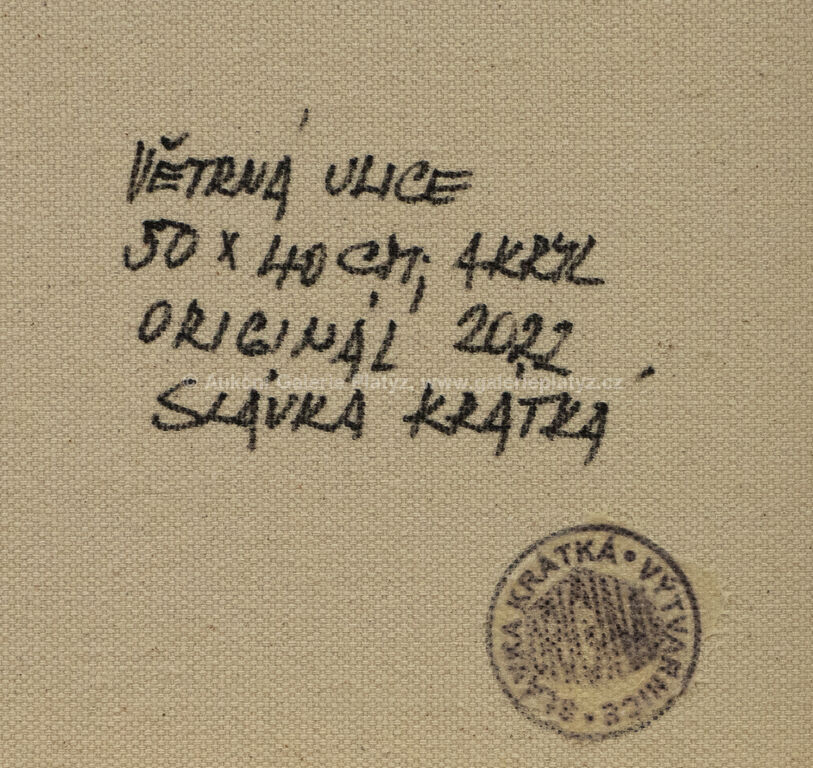 VĚTRNÁ ULICE
50 x 40 CM, AKRYL
ORIGINÁL 2022
© Aukční Galerie Platýz, www.galerieplatyz.cz
SLÁVKA KRÁTKÁ
SLÁVKA KRÁTKÁ • VÝTVARNICE •